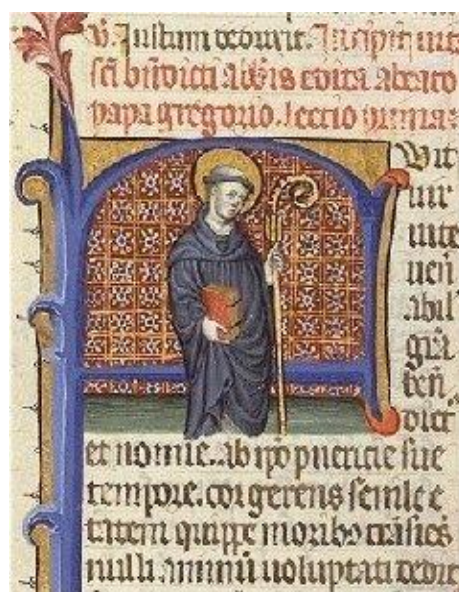 Iustum deduxit. Incipit uita
sci bñdicti abbis edita a beato
papa gregorio. lectio prima
uit
uir
uite
uen
abil
gra
ben
dict
et nomie. ab ipo puericie sue
tempore. cor gerens senile e
tatem quippe moribꝰ trãsies
nulli animũ uoluptati